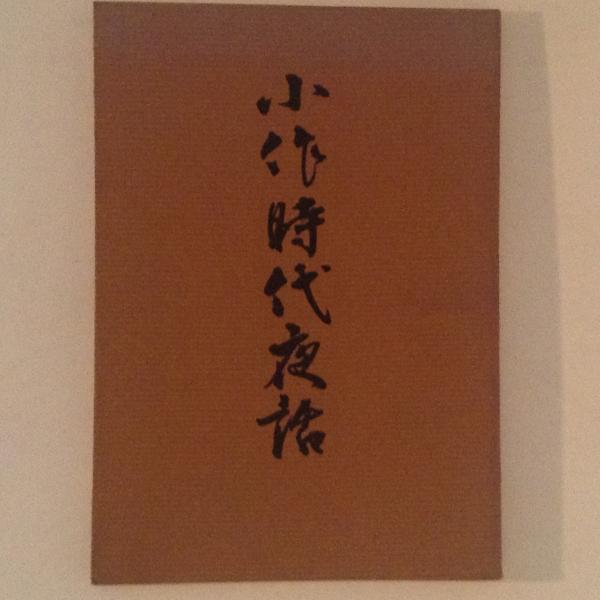 小作時代夜話